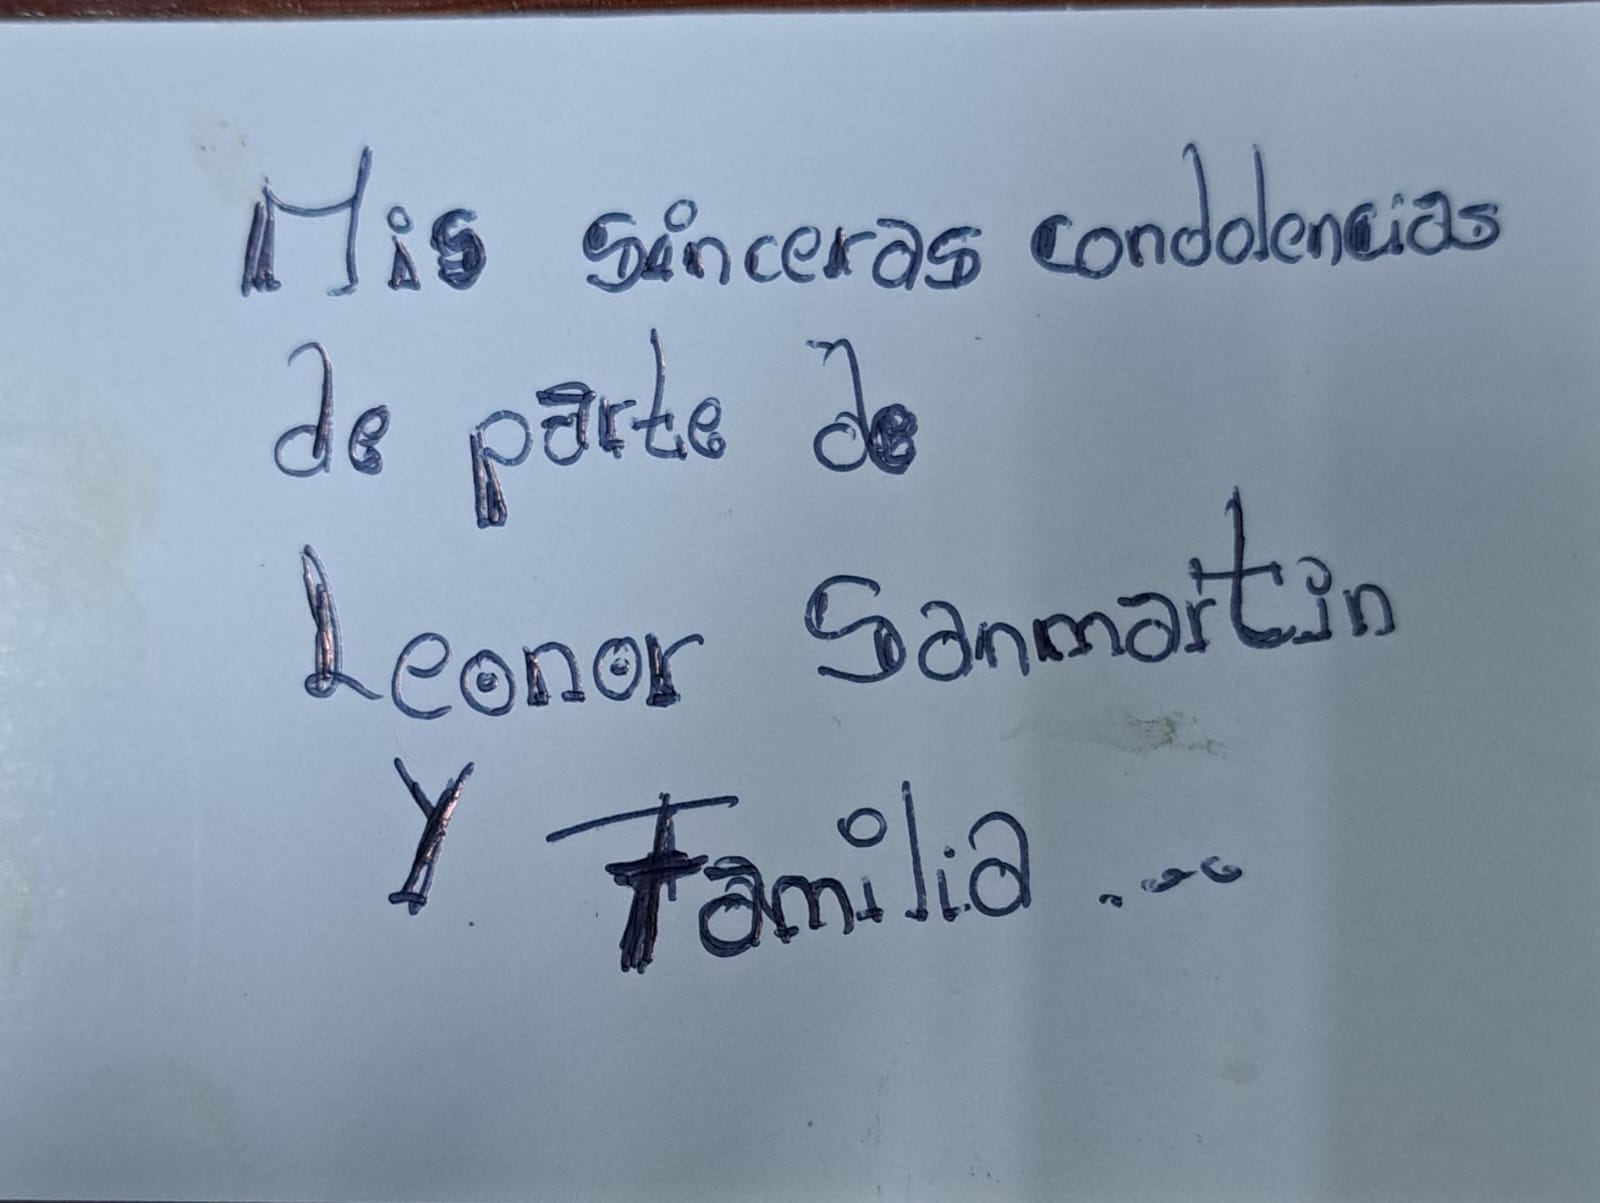 Mis sinceras condolencias
de parte de
Leonor Sanmartin
Y Familia ...